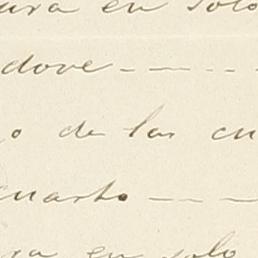 ura en solo
dove - — - . . -
o de las cu
cuarto — — -
ra en solo